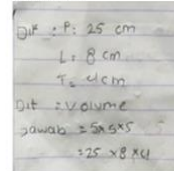 Dik : P : 25 cm
L : 8 cm
T = 4 cm
Dit : Volume
Jawab = 5x5x5
= 25 x 8 x 4